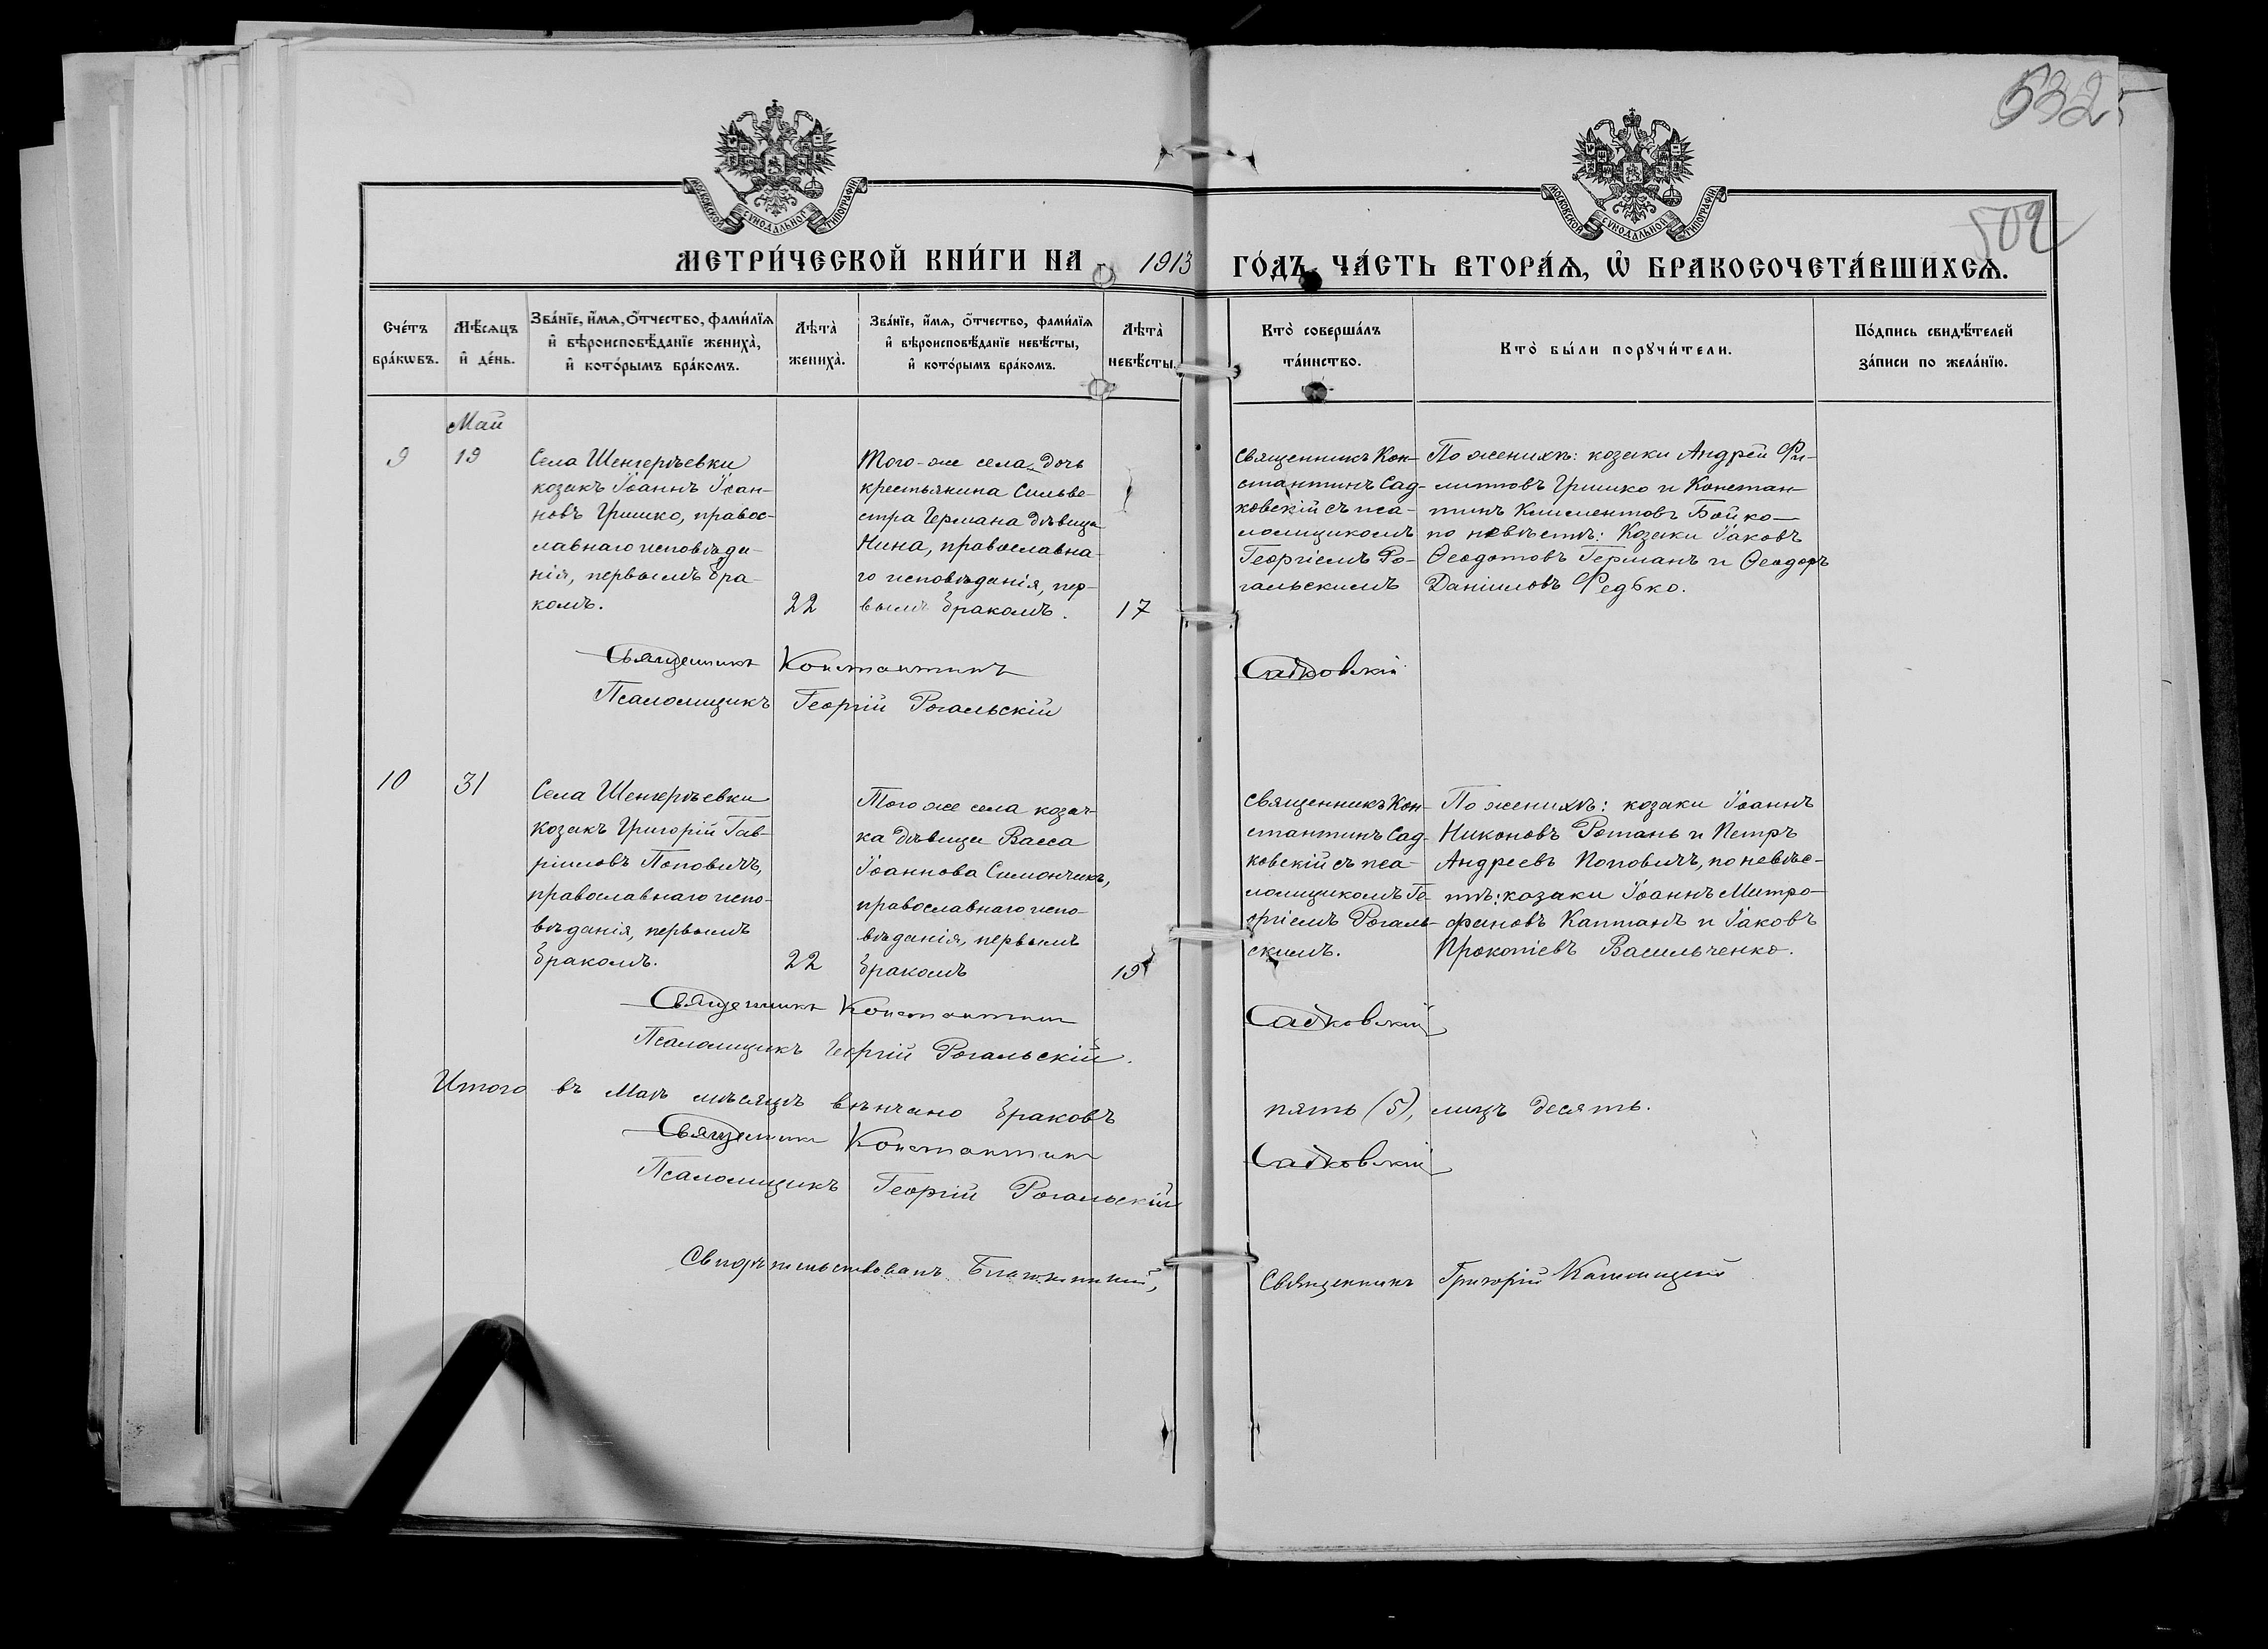 5325
502
МОСКОВСКОЙ СѴНОДАЛЬНОЙ ТИПОГРАФІИ
МОСКОВСКОЙ СѴНОДАЛЬНОЙ ТИПОГРАФІИ
МЕТРИ́ЧЕСКОЙ КНИ́ГИ НА 1913 ГО́ДЪ, ЧА́СТЬ ВТОРА́Ѧ, Ѽ БРАКОСОЧЕТА́ВШИХСѦ.
Сче́тъ бра́кѡвъ.
Мѣ́сѧцъ и҆ де́нь.
Зва́нїе, и҆́мѧ, ѻ҆́тчество, фами́лїѧ
и҆ вѣроисповѣ́данїе жениха̀,
и҆ кото́рымъ бра́комъ.
Лѣта̀ жениха̀.
Зва́нїе, и҆́мѧ, ѻ҆́тчество, фами́лїѧ
и҆ вѣроисповѣ́данїе невѣ́сты,
и҆ кото́рымъ бра́комъ.
Лѣта̀ невѣ́сты.
Кто̀ соверша́лъ
та́инство.
Кто̀ бы́ли порꙋчи́тели.
По́дпись свидѣ́телей
за́писи по жела́нїю.
Май
9
19
Села Шенгерѣевки
козакъ Іоаннъ Іоан-
новъ Гришко, правос-
лавнаго исповѣда-
нія, первымъ бра-
комъ.
22
Того-же села, дочь
крестьянина Сильве-
стра Германа дѣвица
Нина, православна-
го исповѣданія, пер-
вымъ бракомъ.
17
Священникъ Кон-
стантинъ Сад-
ковскій съ пса-
ломщикомъ
Георгіемъ Ро-
гальскимъ
По женихѣ: козаки Андрей Фи-
липповъ Гришко и Констан-
тинъ Климентовъ Бойко
по невѣстѣ: Козаки Іаковъ
Ѳеодотовъ Германъ и Ѳеодоръ
Даніиловъ Федько.
Священникъ Константинъ Садковскій
Псаломщикъ Георгій Рогальскій
10
31
Села Шенгерѣевки
козакъ Григорій Гав-
ріиловъ Поповичъ,
православнаго испо-
вѣданія, первымъ
бракомъ.
22
Того же села козач-
ка дѣвица Васса
Іоаннова Симончикъ,
православнаго испо-
вѣданія, первымъ
бракомъ
19
Священникъ Кон-
стантинъ Сад-
ковскій съ пса-
ломщикомъ Ге-
оргіемъ Рогаль-
скимъ.
По женихѣ: козаки Іоаннъ
Никоновъ Ротань и Петръ
Андреевъ Поповичъ, по невѣс-
тѣ: козаки Іоаннъ Митро-
фановъ Каптанъ и Іаковъ
Прокопіевъ Васильченко.
Священникъ Константинъ Садковскій
Псаломщикъ Георгій Рогальскій.
Итого въ Маѣ мѣсяцѣ вѣнчано браковъ пять (5), лицъ десять.
Священникъ Константинъ Садковскій
Псаломщикъ Георгій Рогальскій
Священникъ Григорій